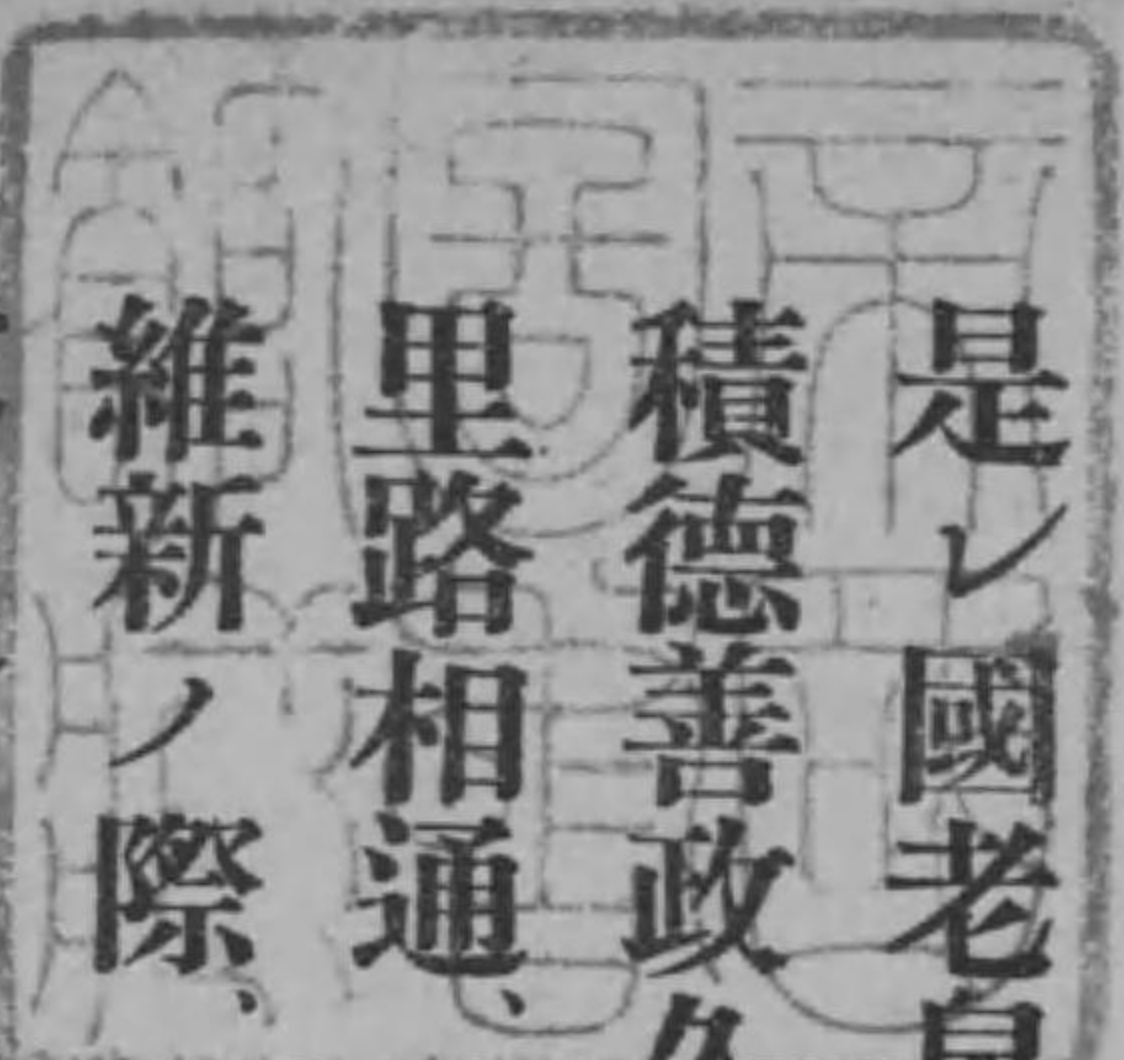 是レ國老
積德善政久
里路相通、
維新ノ際、